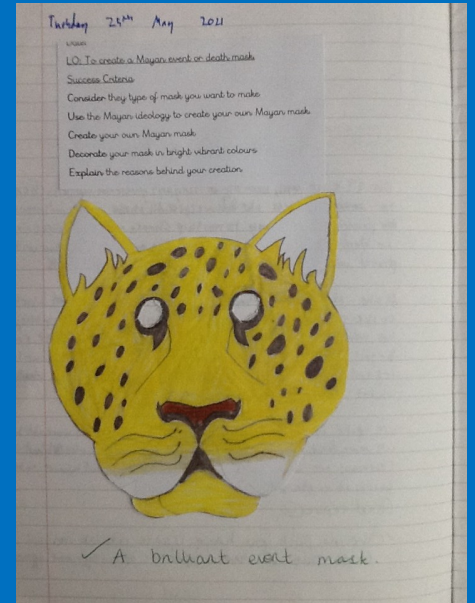 Tuesday 25th May 2021
LO: To create a Mayan event or death mask
Success Criteria
Consider they type of mask you want to make
Use the Mayan ideology to create your own Mayan mask
Create your own Mayan mask
Decorate your mask in bright vibrant colours
Explain the reasons behind your creation
✓ A brilliant event mask.